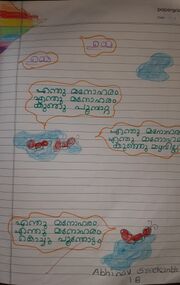 എന്തു മനോഹരം
എന്തു മനോഹരം
കുഞ്ഞു പൂമ്പാറ്റ
എന്തു മനോഹരം
എന്തു
കുഞ്ഞു
എന്തു മനോഹരം
എന്തു മനോഹരം
കൊച്ചു പൂന്തോട്ടം
Abhinav Sreekanth
1 B